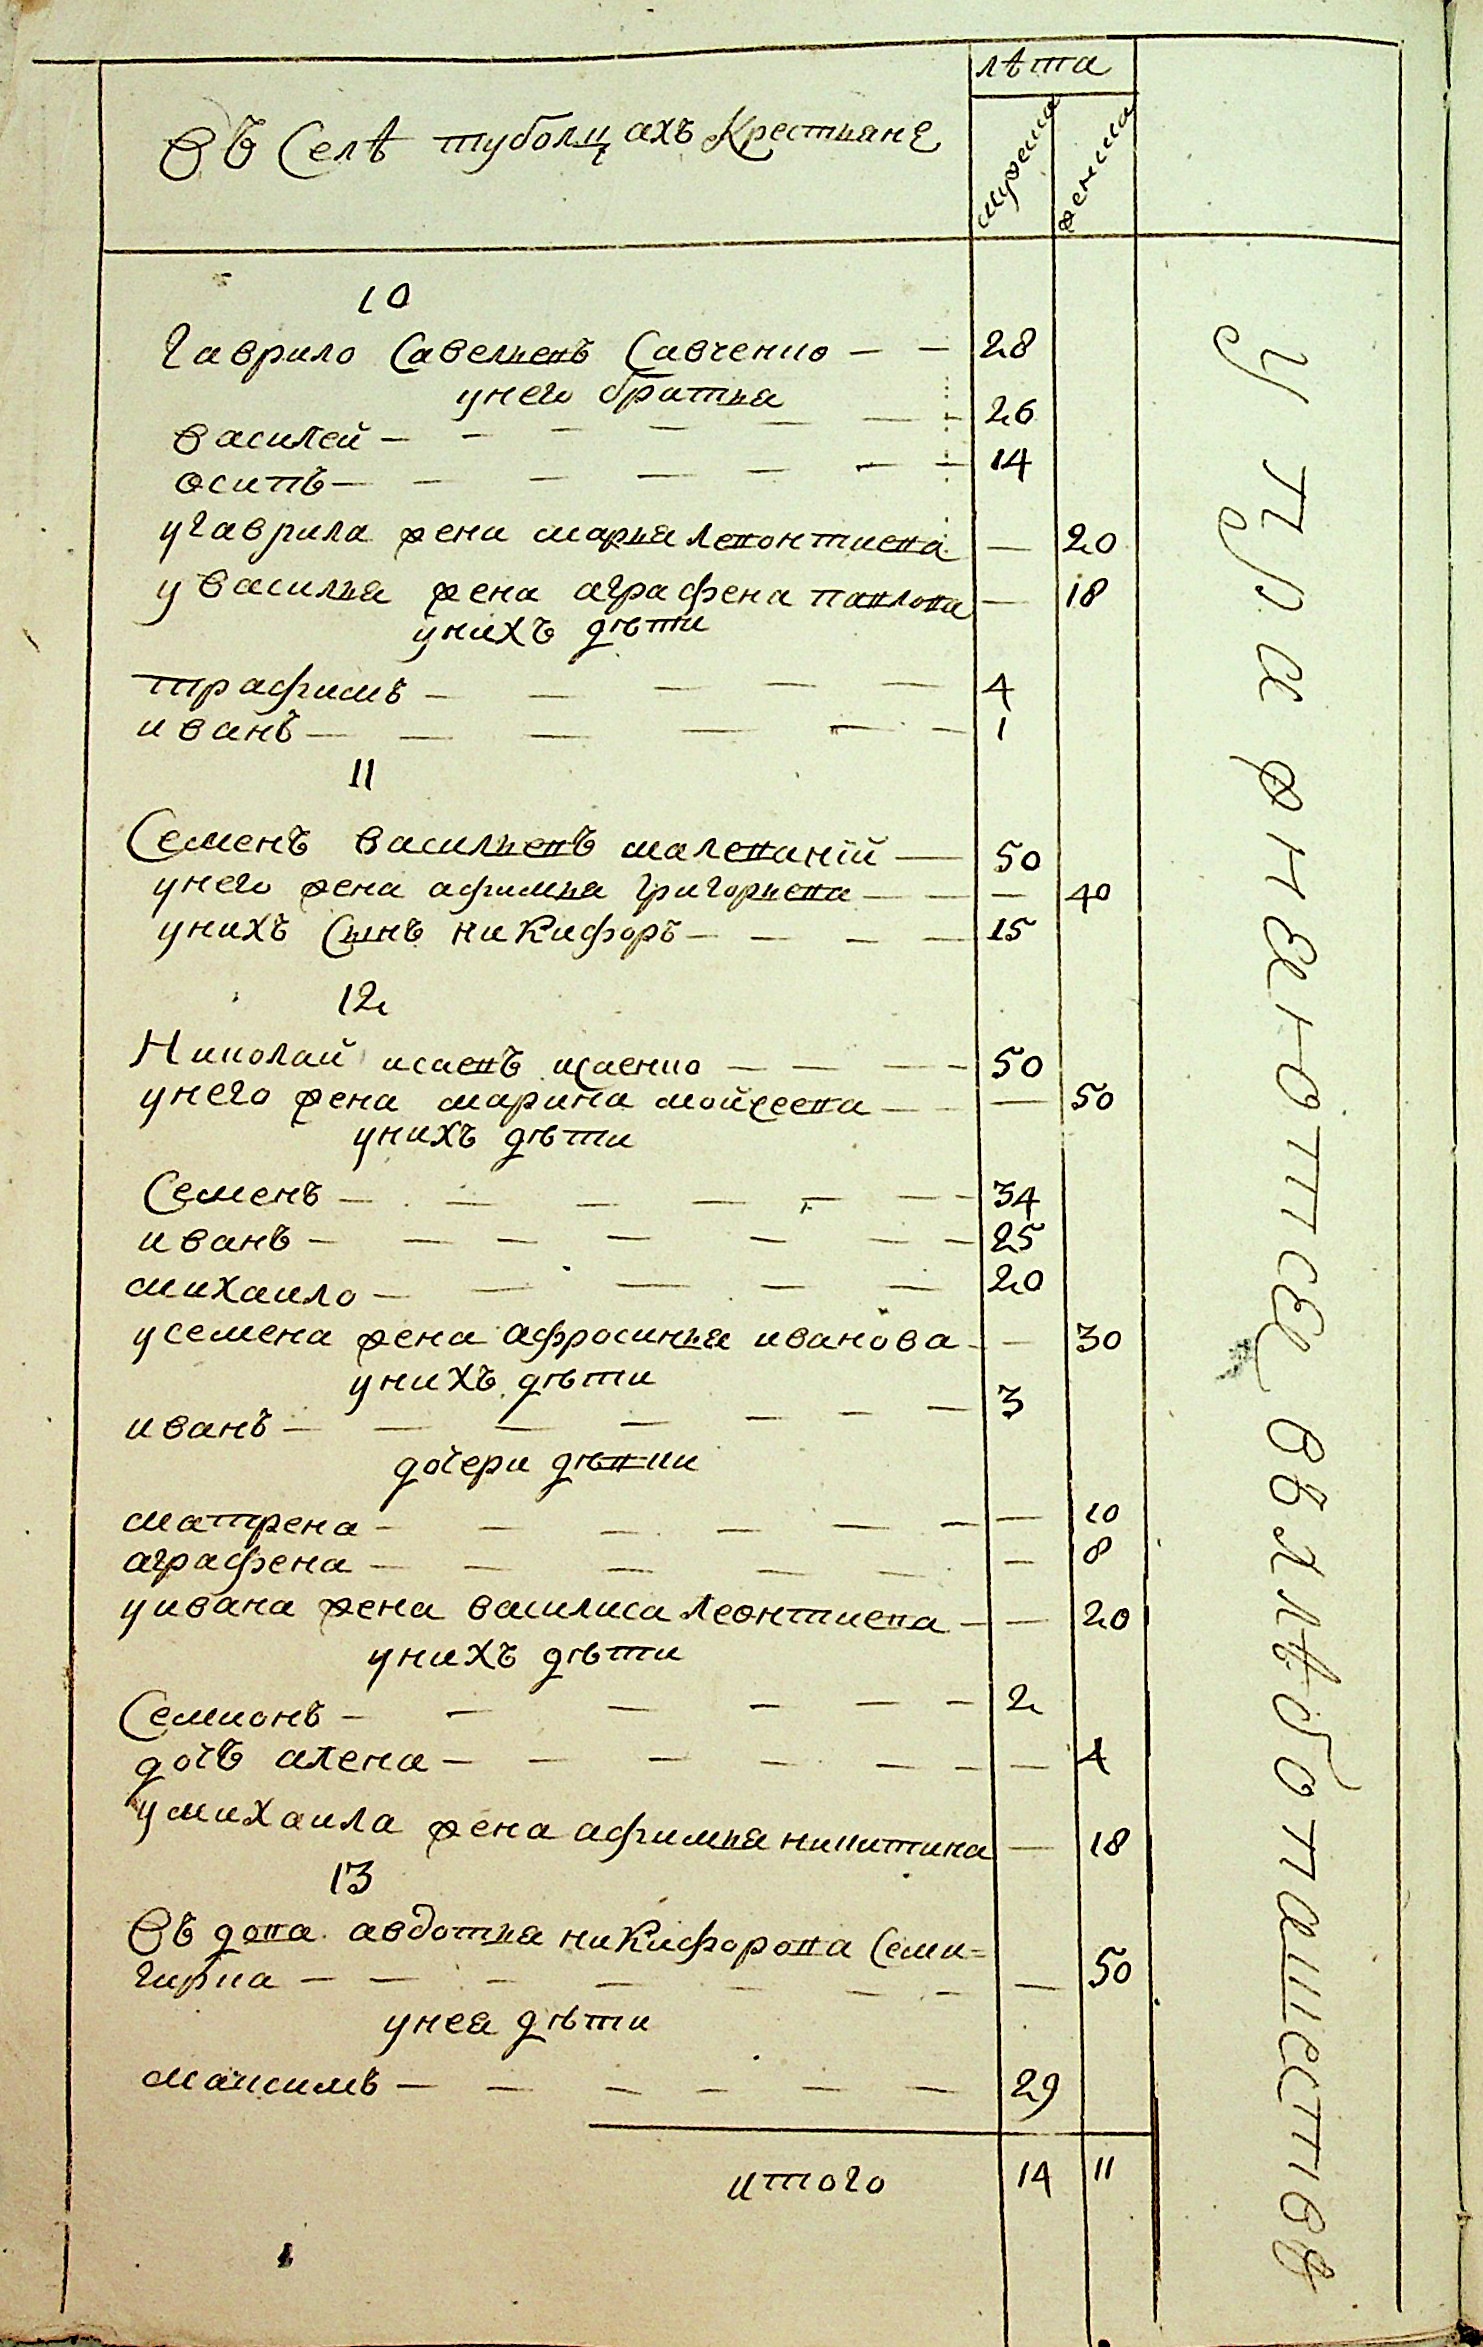 лѣта
Въ Селѣ туболцахъ Крестьяне
мужеска
женска
10
Гаврило Савельевъ Савченко — — 28
у него братья
Василей — — — — — — 26
осипъ — — — — — — 14
у Гаврила жена марья Левонтиева — 20
у Василья жена аграфена павлова — 18
у нихъ дѣти
трафимъ — — — — — 4
иванъ — — — — — — 1
11
Семенъ васильевъ малевиній — 50
у него жена афимья григорьева — — — 40
у нихъ Сынъ никифоръ — — — — 15
12
Николай исаевъ исаенко — — — — 50
у него жена марина мойсеева — — — 50
у нихъ дѣти
Семенъ — — — — — — — 34
иванъ — — — — — — — 25
михаило — — — — — 20
у семена жена афросинья иванова — — 30
у нихъ дѣти
иванъ — — — — — — — 3
дочери дѣвки
матрена — — — — — — — 10
аграфена — — — — — — 8
у ивана жена василиса Леонтиева — — 20
у нихъ дѣти
Семионъ — — — — — — 2
дочь алена — — — — — — — 4
у михаила жена афимья никитина — 18
13
Въдова авдотья никифорова Семи=
гирка — — — — — — — — 50
у нея дѣти
максимъ — — — — — — 29
итого 14 11
упражнеютсе в хлѣбопашестве